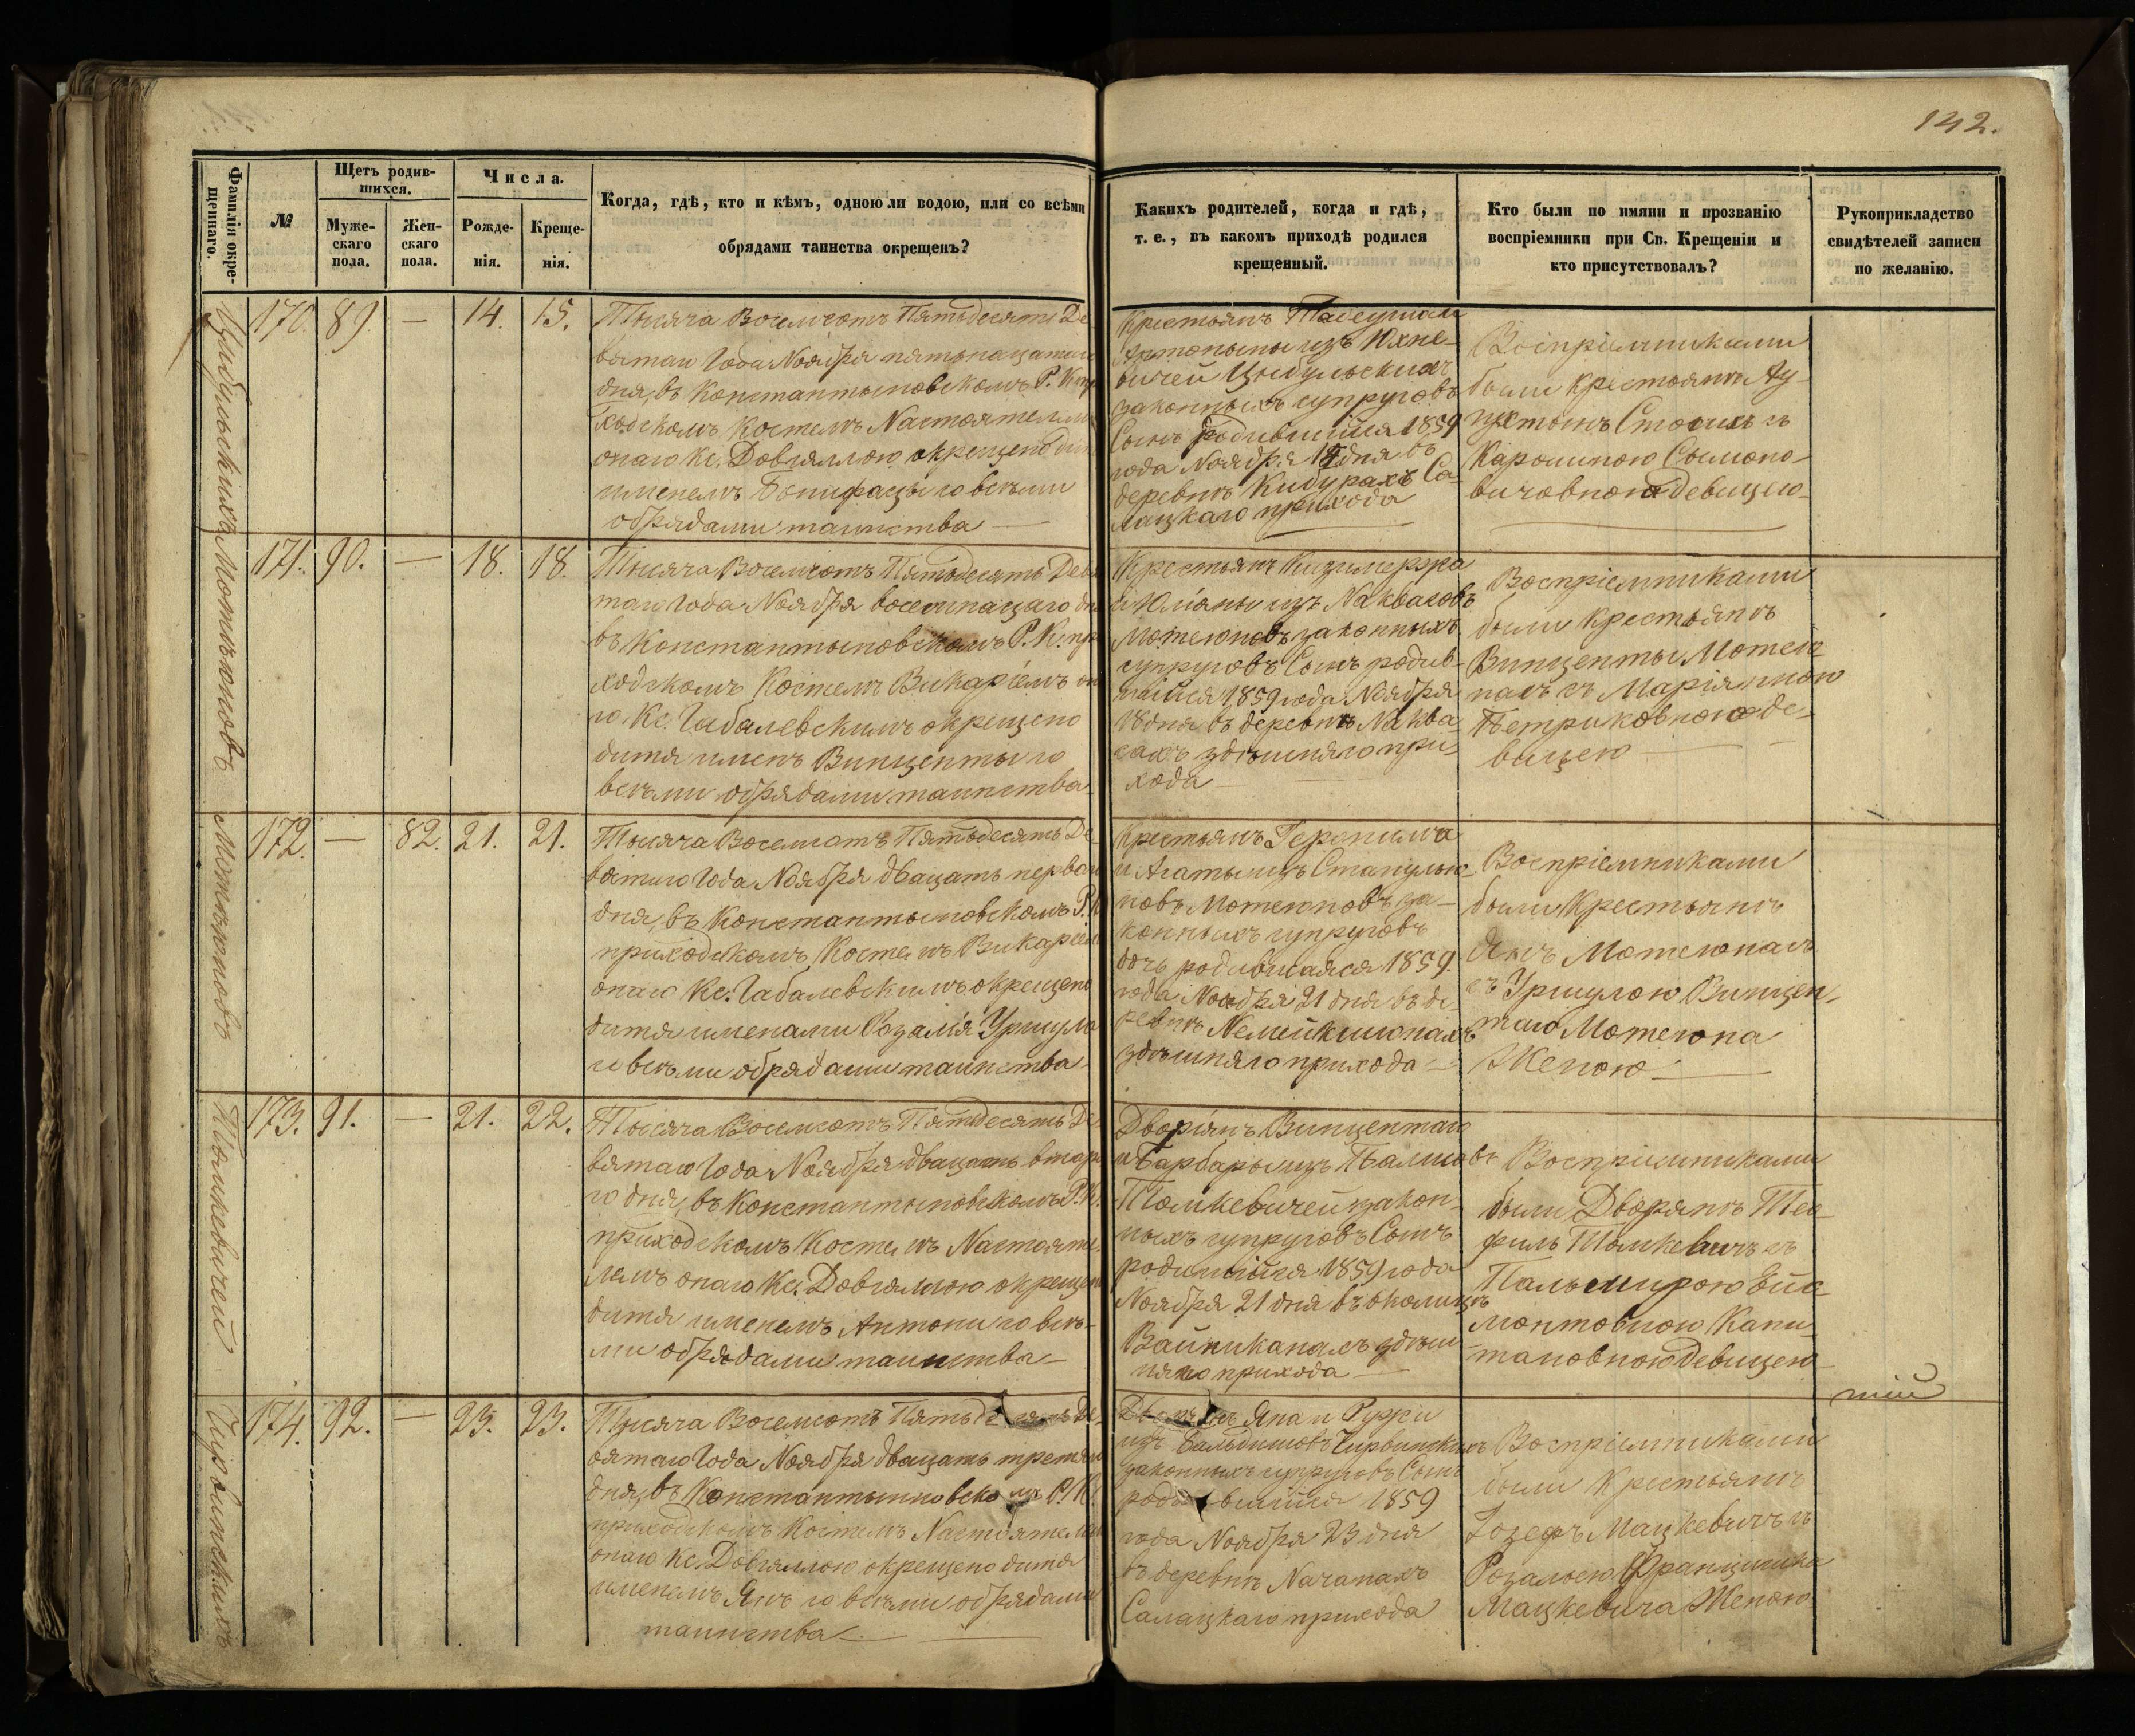 142.
Фамилія окре-
щеннаго.
№
Щетъ родив-
шихся.
Муже-
скаго
пола.
Жен-
скаго
пола.
Числа.
Рожде-
нія.
Креще-
нія.
Когда, гдѣ, кто и кѣмъ, одною ли водою, или со всѣми
обрядами таинства окрещенъ?
Какихъ родителей, когда и гдѣ,
т. е., въ какомъ приходѣ родился
крещенный.
Кто были по имяни и прозванію
воспріемники при Св. Крещеніи и
кто присутствовалъ?
Рукоприкладство
свидѣтелей записи
по желанію.
Цыбульскихъ
170. 89. — 14. 15.
Тысяча Восемсотъ Пятьдесятъ Де-
вятаго Года Ноября пятьнацатаго
дня, въ Константыновскомъ Р. К. при
ходскомъ Костелѣ Настоятелемъ
онаго Кс. Довгяллою окрещено дитя
именемъ Бонифацы со всѣми
обрядами таинства —
Крестьянъ Тадеуша и
Антонины изъ Юхне-
вичей Цыбульскихъ
законныхъ супруговъ
Сынъ родившійся 1859
года Ноября 14 дня въ
деревнѣ Кидурахъ Са-
лацкаго прихода
Воспріемниками
были крестьянинъ Ау-
съ
Каролиною Сымоно-
вичовною девицею
Мотеюновъ
171. 90. — 18. 18.
Тысяча Восемсотъ Пятьдесятъ Девя
таго Года Ноября восемнацаго дня
въ Константыновскомъ Р. К. при
ходскомъ Костелѣ Викаріемъ она
го Кс. Габалевскимъ окрещено
дитя имемъ Винценты со
всѣми обрядами таинства
Крестьянъ Кизимержа
и Юліяны изъ Наквасовъ
Мотеюновъ законныхъ
супруговъ Сынъ родив-
шійся 1859 года Ноября
18 дня въ деревнѣ Наква-
сахъ здѣшняго при-
хода —
Воспріемниками
были крестьянинъ
Винценты Мотею
насъ съ Маріянною
Петриковною де-
вицею —
Мотеюновъ
172. — 82. 21. 21.
Тысяча Восемсотъ Пятьдесятъ Де-
вятаго Года Ноября двацать перваго
дня, въ Константыновскомъ Р. К.
приходскомъ Костелѣ Викаріемъ
онаго Кс. Габалевскимъ окрещено
дитя именами Розалія Уршуля
со всѣми обрядами таинства
Крестьянъ Геронима
и Агаты изъ Станулю-
новъ Мотеюновъ за-
конныхъ супруговъ
дочь родившаяся 1859.
года Ноября 21 дня въ де-
ревнѣ Немейкшюнахъ
здѣшняго прихода —
Воспріемниками
были крестьянинъ
Янъ Мотеюнасъ
съ Уршулою Винцен-
таго Мотеюна
Женою —
Томкевичей
173. 91. — 21. 22.
Тысяча Восемсотъ Пятьдесятъ Де
вятаго Года Ноября двацать втора
го дня, въ Константыновскомъ Р. К.
приходскомъ Костелѣ Настояте-
лемъ онаго Кс. Довгяллою окрещено
дитя именемъ Антони со всѣ-
ми обрядами таинства —
Дворянъ Винцентаго
и Барбары изъ
Томкевичей закон-
ныхъ супруговъ Сынъ
родившійся 1859 года
Ноября 21 дня въ околицѣ
Вайниканахъ здѣш-
няго прихода —
Воспріемниками
были Дворянинъ Тео-
филь Томкевичъ съ
Пальмирою Эйс-
монтовною Капи-
тановною девицею
Чирвинскихъ
174. 92. — 23. 23.
Тысяча Восемсотъ Пятьдесятъ Де-
вятаго Года Ноября двацать третяго
дня, въ Константыновскомъ Р. К.
приходскомъ Костелѣ Настоятелемъ
онаго Кс. Довгяллою окрещено дитя
именемъ Янъ со всѣми обрядами
таинства —
Дворянъ Яна и Руфи
изъ Бальдишовъ Чирвинскихъ
законныхъ супруговъ Сынъ
родившійся 1859
года Ноября 23 дня
въ деревнѣ Начанахъ
Салацкаго прихода
Воспріемниками
были Крестьянинъ
Іозефъ Мацкевичъ съ
Розалією Францишка
Мацкевича Женою